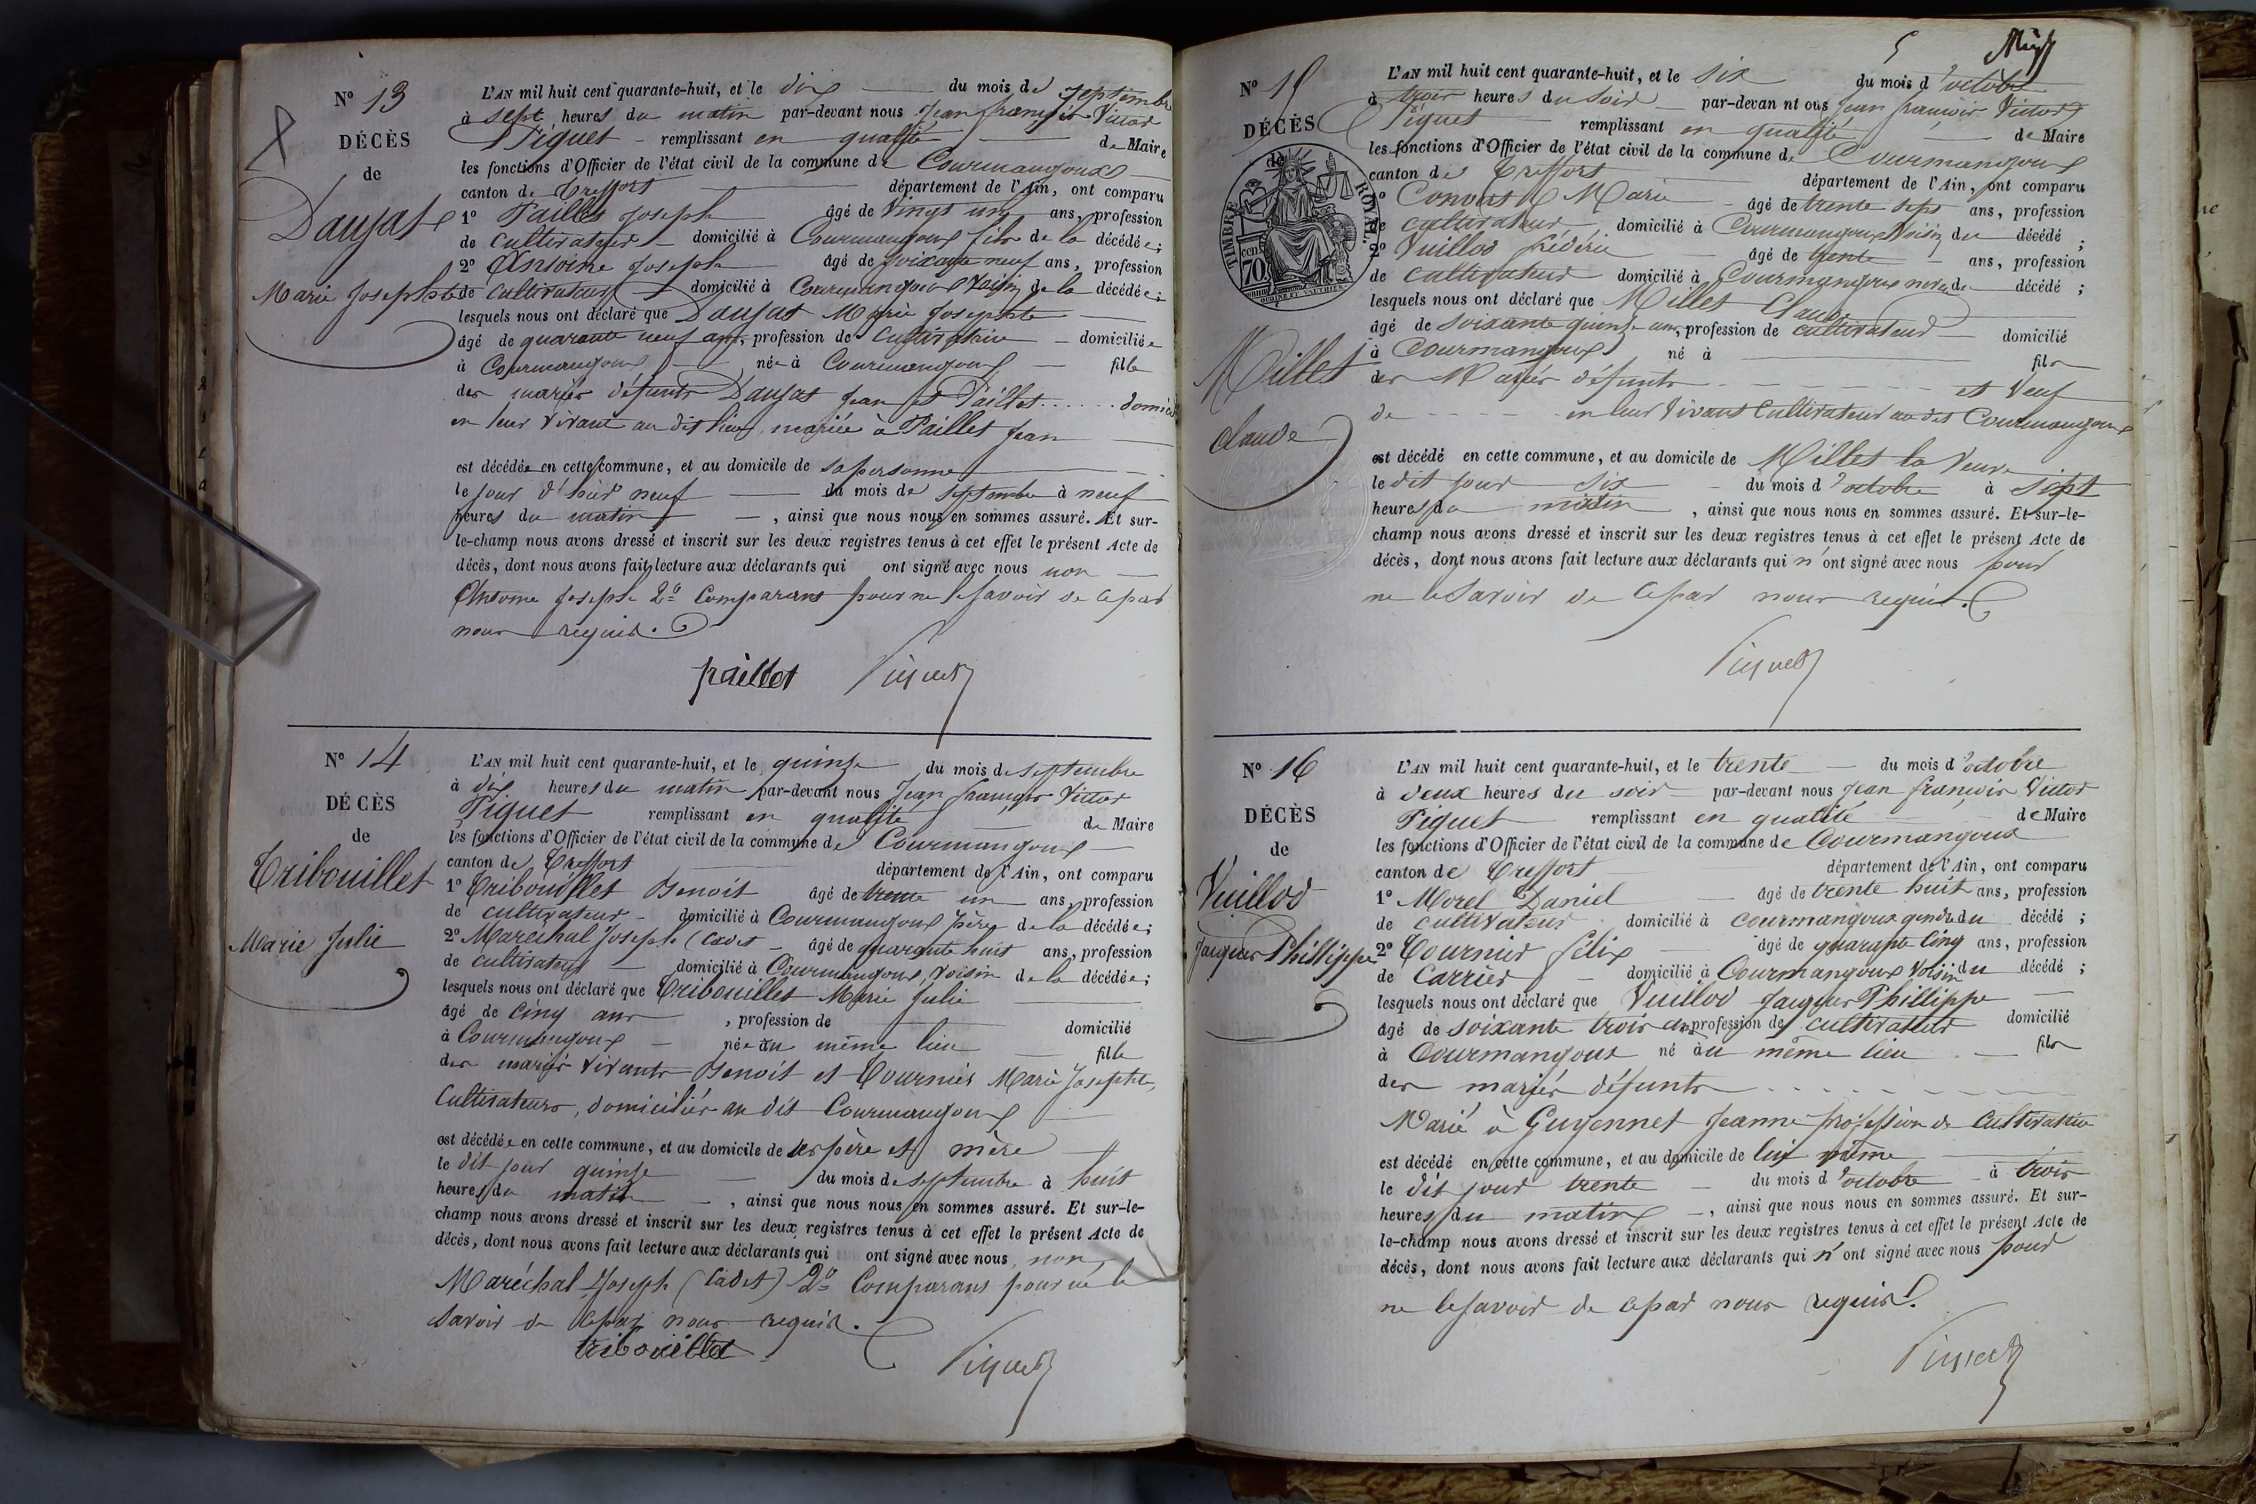 N° 13
DÉCÈS
de
Daujat
Marie Josephte
L'AN mil huit cent quarante-huit, et le dix du mois de septembre
à sept heures du matin par-devant nous Jean françois Victor
Piquet remplissant en qualité de Maire
les fonctions d'Officier de l'état civil de la commune de Courmangoux
canton de Treffort département de l'Ain, ont comparu
1° Paillet Joseph âgé de vingt un ans, profession
de cultivateur domicilié à Courmangoux fils de la décédée;
2° Antoine Joseph âgé de soixante neuf ans, profession
de cultivateur domicilié à Courmangoux Voisin de la décédée;
lesquels nous ont déclaré que Daujat Marie Josephte
âgé de quarante neuf ans, profession de cultivatrice domiciliée
à Courmangoux née à Courmangoux fille
des mariés défunts Daujat Jean et Paillet...... domiciliés
en leur vivant au dit lieu, mariée à Paillet Jean
est décédée en cette commune, et au domicile de sa personne
le jour d'hier neuf du mois de septembre à neuf
heures du matin, ainsi que nous nous en sommes assuré. Et sur-
le-champ nous avons dressé et inscrit sur les deux registres tenus à cet effet le présent Acte de
décès, dont nous avons fait lecture aux déclarants qui ont signé avec nous non
Antoine Joseph 2e Comparant pour ne le savoir de ce par
nous requis.
paillet Piquet
N° 14
DÉCÈS
de
Tribouillet
Marie Julie
L'AN mil huit cent quarante-huit, et le quinze du mois de septembre
à dix heures du matin par-devant nous Jean françois Victor
Piquet remplissant en qualité de Maire
les fonctions d'Officier de l'état civil de la commune de Courmangoux
canton de Treffort département de l'Ain, ont comparu
1° Tribouillet Benoit âgé de trente un ans, profession
de cultivateur domicilié à Courmangoux père de la décédée;
2° Maréchal Joseph (Cadet âgé de quarante huit ans, profession
de cultivateur domicilié à Courmangoux, voisin de la décédée;
lesquels nous ont déclaré que Tribouillet Marie Julie
âgé de cinq ans, profession de domicilié
à Courmangoux née au même lieu fille
des mariés vivants Benoit et Tournier Marie Josephte,
Cultivateurs, domiciliés au dit Courmangoux
est décédée en cette commune, et au domicile de ses père et mère
le dit jour quinze du mois de septembre à huit
heures du matin, ainsi que nous nous en sommes assuré. Et sur-le-
champ nous avons dressé et inscrit sur les deux registres tenus à cet effet le présent Acte de
décès, dont nous avons fait lecture aux déclarants qui ont signé avec nous non
Maréchal Joseph (Cadet) 2e Comparant pour ne le
savoir de ce par nous requis.
tribouillet Piquet
5
N° 15
DÉCÈS
de
TIMBRE ROYAL
CEN. 70
Millet
claude
L'AN mil huit cent quarante-huit, et le six du mois d'octobre
à trois heures du soir par-devan nt ous Jean françois Victor
Piquet remplissant en qualité de Maire
les fonctions d'Officier de l'état civil de la commune de Courmangoux
canton de Treffort département de l'Ain, ont comparu
1° Convert Marie âgé de trente sept ans, profession
de cultivateur domicilié à Courmangoux Voisin du décédé;
2° Vuillod frédéric âgé de trente ans, profession
de cultivateur domicilié à Courmangoux neveu du décédé;
lesquels nous ont déclaré que Millet Claude
âgé de soixante quinze ans, profession de cultivateur domicilié
à Courmangoux né à fils
des Mariés défunts et Veuf
de en leur vivant Cultivateur au dit Courmangoux
est décédé en cette commune, et au domicile de Millet la Veuve
le dit jour six du mois d'octobre à sept
heures du matin, ainsi que nous nous en sommes assuré. Et sur-le-
champ nous avons dressé et inscrit sur les deux registres tenus à cet effet le présent Acte de
décès, dont nous avons fait lecture aux déclarants qui n'ont signé avec nous pour
ne le savoir de ce par nous requis.
Piquet
N° 16
DÉCÈS
de
Vuillod
Jacques Phillippe
L'AN mil huit cent quarante-huit, et le trente du mois d'octobre
à deux heures du soir par-devant nous Jean françois Victor
Piquet remplissant en qualité de Maire
les fonctions d'Officier de l'état civil de la commune de Courmangoux
canton de Treffort département de l'Ain, ont comparu
1° Morel Daniel âgé de trente huit ans, profession
de cultivateur domicilié à courmangoux gendre du décédé;
2° Tournier félix âgé de quarante cinq ans, profession
de Carrier domicilié à Courmangoux Voisin du décédé;
lesquels nous ont déclaré que Vuillod Jacques Phillippe
âgé de soixante trois ans profession de cultivateur domicilié
à Courmangoux né au même lieu fils
des mariés défunts
Marié à Guyennet Jeanne profession de Cultivatrice
est décédé en cette commune, et au domicile de lui même
le dit jour trente du mois d'octobre à trois
heures du matin, ainsi que nous nous en sommes assuré. Et sur-
le-champ nous avons dressé et inscrit sur les deux registres tenus à cet effet le présent Acte de
décès, dont nous avons fait lecture aux déclarants qui n'ont signé avec nous pour
ne le savoir de ce par nous requis.
Piquet